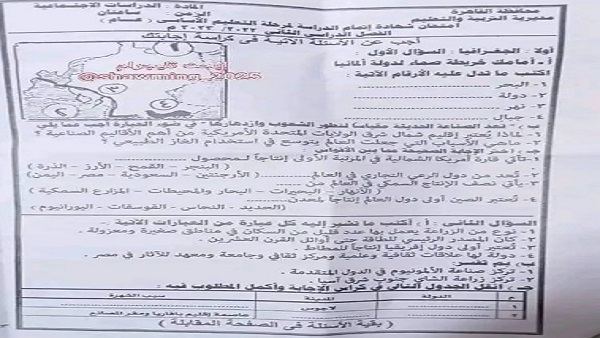 محافظة القاهرة
مديرية التربية والتعليم
المادة: الدراسات الاجتماعية
الزمن: ساعتان
امتحان شهادة إتمام الدراسة لمرحلة التعليم الأساسى (عام)
الفصل الدراسى الثانى ٢٠٢٢/٢٠٢٣ م
أجب عن الأسئلة الآتية فى كراسة إجابتك
أولًا: الجغرافيا: السؤال الأول:
أ - أمامك خريطة صماء لدولة ألمانيا
اكتب ما تدل عليه الأرقام الآتية:
١- البحر
٢- دولة
٣- نهر
٤- جبال
@shawming_2025
ب - "تعد الصناعة الحديثة مقياسًا لتطور الشعوب وازدهارها" - فى ضوء العبارة أجب عما يلى:
١- لماذا يُعتبر إقليم شمال شرق الولايات المتحدة الأمريكية من أهم الأقاليم الصناعية؟
٢- ماهى الأسباب التى جعلت العالم يتوسع فى استخدام الغاز الطبيعى؟
جـ - اختر الإجابة الصحيحة مما بين الأقواس:
١- تأتى قارة أمريكا الشمالية فى المرتبة الأولى إنتاجًا لمحصول (البنجر - القمح - الأرز - الذرة)
٢- تُعد من دول الرعى التجارى فى العالم (الأرجنتين - السعودية - مصر - اليمن)
٣- يأتى نصف الإنتاج السمكى فى العالم من
(الأنهار - البحيرات - البحار والمحيطات - المزارع السمكية)
٤- تعتبر الصين أولى دول العالم إنتاجًا لمعدن
(الحديد - النحاس - الفوسفات - اليورانيوم)
السؤال الثانى: أ) أكتب ما تشير إليه كل عبارة من العبارات الآتية:
١- نوع من الزراعة يعمل بها عدد قليل من السكان فى مناطق صغيرة ومعزولة.
٢- كان المصدر الرئيسى للطاقة حتى أوائل القرن العشرين.
٣- تُعتبر أولى دول إفريقيا إنتاجًا للمطاط.
٤- دولة لها علاقات ثقافية وعلمية ومركز ثقافى وجامعة ومعهد للآثار فى مصر.
ب) بم تفسر:
١- تركز صناعة الألومنيوم فى الدول المتقدمة.
٢- تركز زراعة الشاى جنوب شرق آسيا.
جـ - انقل الجدول التالى فى كراس الإجابة وأكمل المطلوب فيه:
م الدولة المدينة سبب الشهرة
١ لاجوس
٢ عاصمة إقليم بافاريا ومقر للمصانع
(بقية الأسئلة فى الصفحة المقابلة)